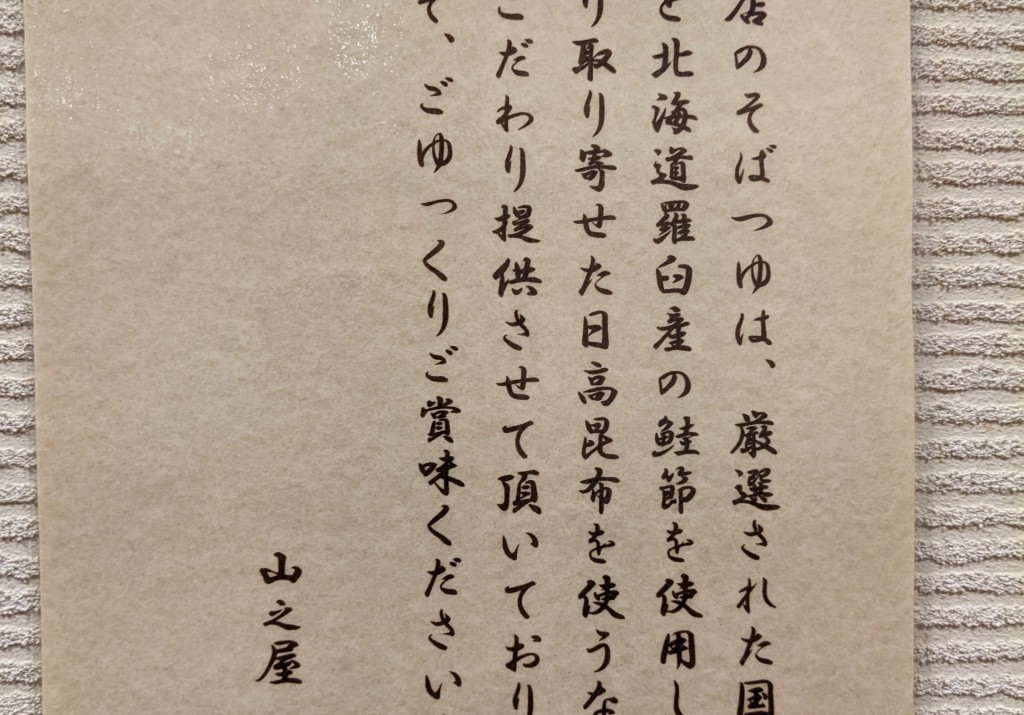 店のそばつゆは、厳選された国
と北海道羅臼産の鮭節を使用し
り取り寄せた日高昆布を使うな
こだわり提供させて頂いており
て、ごゆっくりご賞味ください
山之屋